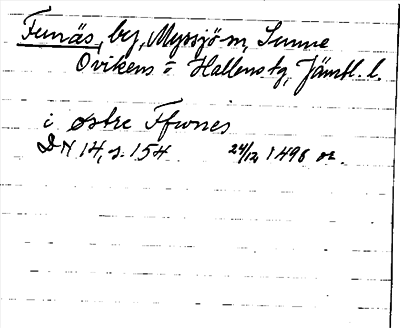 Funäs, by, Myssjö sn, Sunne
Ovikens = Hallens tg, Jämtl. l.
i østre Ffwnes
DN 14, s. 154 24/12 1496 or.